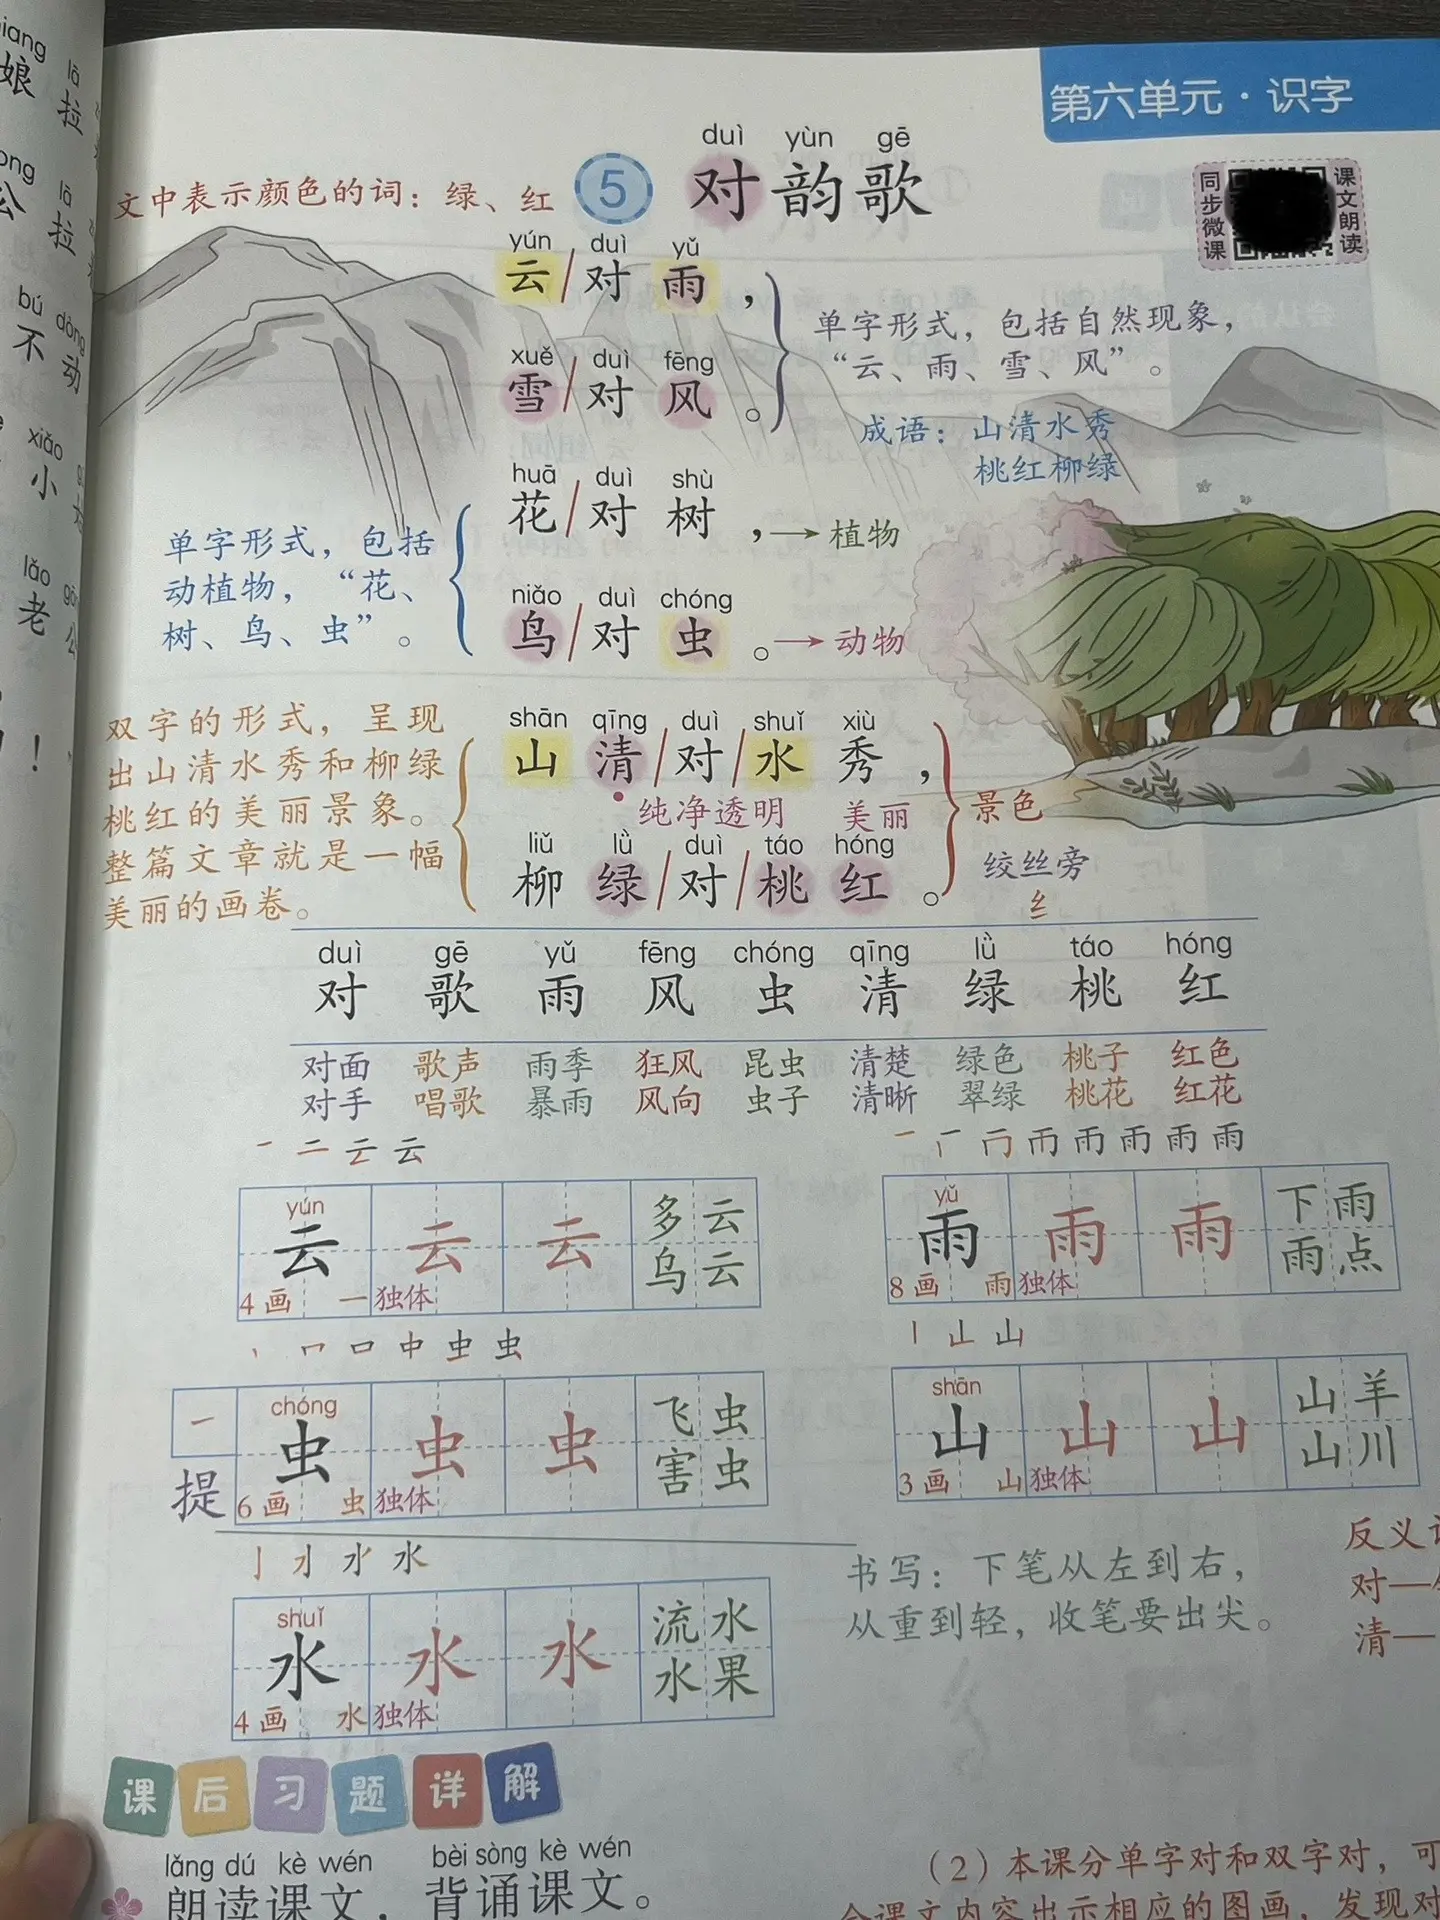 娘 拉
公 拉
bú dòng
不 动
xiǎo
小
lǎo
老 公
！
第六单元·识字
同步微课
课文朗读
文中表示颜色的词：绿、红
duì yùn gē
5 对韵歌
yún duì yǔ
云/对 雨，
xuě duì fēng
雪/对 风。
单字形式，包括自然现象，
“云、雨、雪、风”。
成语：山清水秀
桃红柳绿
huā duì shù
花/对 树，→植物
niǎo duì chóng
鸟/对 虫。→动物
单字形式，包括
动植物，“花、
树、鸟、虫”。
shān qīng duì shuǐ xiù
山 清/对/水 秀，
纯净透明 美丽
liǔ lǜ duì táo hóng
柳 绿/对/桃 红。
景色
绞丝旁
纟
双字的形式，呈现
出山清水秀和柳绿
桃红的美丽景象。
整篇文章就是一幅
美丽的画卷。
duì gē yǔ fēng chóng qīng lǜ táo hóng
对 歌 雨 风 虫 清 绿 桃 红
对面 歌声 雨季 狂风 昆虫 清楚 绿色 桃子 红色
对手 唱歌 暴雨 风向 虫子 清晰 翠绿 桃花 红花
yún
云 云 云 多云
乌云
4画 一 独体
yǔ
雨 雨 雨 下雨
雨点
8画 雨 独体
㇀
提
chóng
虫 虫 虫 飞虫
害虫
6画 虫 独体
shān
山 山 山 山羊
山川
3画 山 独体
shuǐ
水 水 水 流水
水果
4画 水 独体
书写：下笔从左到右，
从重到轻，收笔要出尖。
反义
对—
清—
课后习题详解
lǎng dú kè wén bèi sòng kè wén
朗读课文，背诵课文。
（2）本课分单字对和双字对，可
合课文内容出示相应的图画，发现对